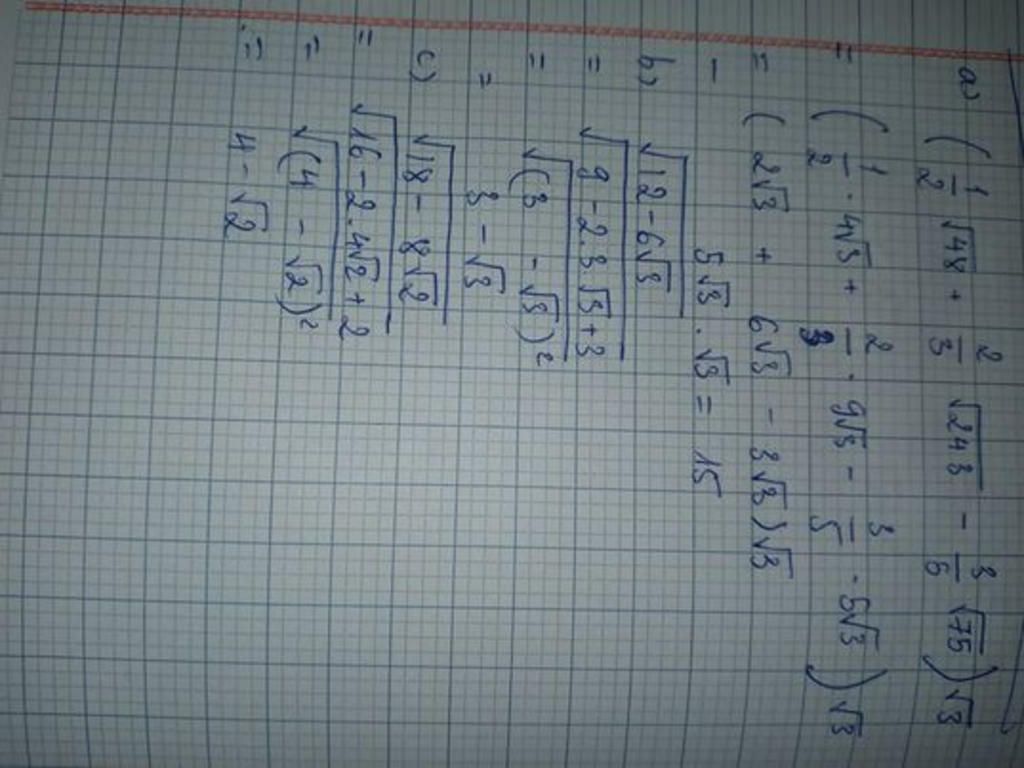 a) (1/2 √48 + 2/3 √243 - 3/6 √75) √3
= (1/2 . 4√3 + 2/3 . 9√3 - 3/5 . 5√3) √3
= (2√3 + 6√3 - 3√3) √3
- 5√3 . √3 = 15
b) √(12 - 6√3)
= √(9 - 2.3√3 + 3)
= √((3 - √3)²)
= 3 - √3
c) √(18 - 8√2)
= √(16 - 2.4√2 + 2)
= √((4 - √2)²)
= 4 - √2